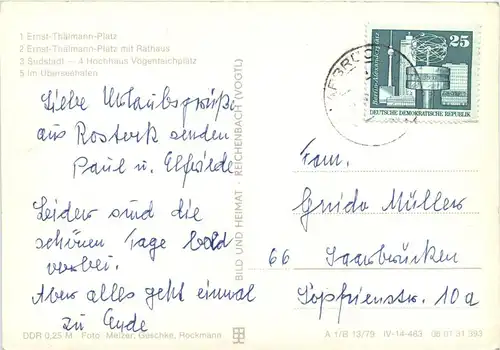 1 Ernst-Thälmann-Platz
2 Ernst-Thälmann-Platz mit Rathaus
3 Südstadt — 4 Hochhaus Vögenteichplatz
5 Im Überseehafen
Liebe Urlaubsgrüße
aus Rostock senden
Paul u. Elfriede
Leider sind die
schönen Tage bald
vorbei.
Aber alles geht einmal
zu Ende
DDR 0,25 M Foto: Melzer, Geschke, Rockmann
BILD UND HEIMAT · REICHENBACH (VOGTL)
25
Berlin-Alexanderplatz
DEUTSCHE DEMOKRATISCHE REPUBLIK
Fam.
Guido Müller
66 Saarbrücken
Sophienstr. 10a
A 1/B 13/79 IV-14-483 08 01 31 393